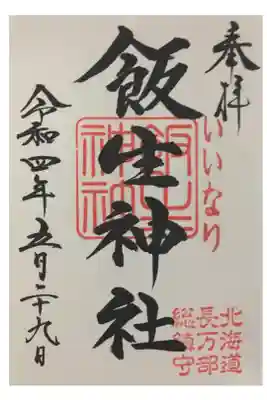 奉拝
いいなり
飯生神社
飯生神社
令和四年五月二十九日
北海道
長万部
総鎮守